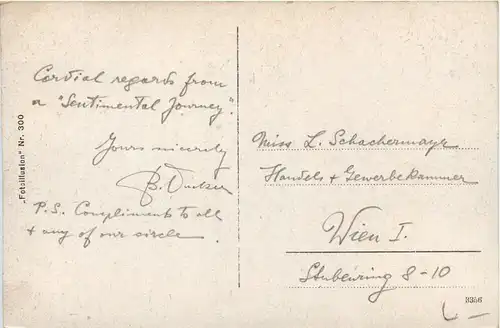 Cordial regards from
a "Sentimental Journey".
Yours sincerely
B.
P.S. Compliments to all
+ any of our circle.
"Fotoillusion" Nr. 300
Miss L. Schachermayr
Handels + Gewerbekammer
Wien I.
Stubenring 8-10
3356